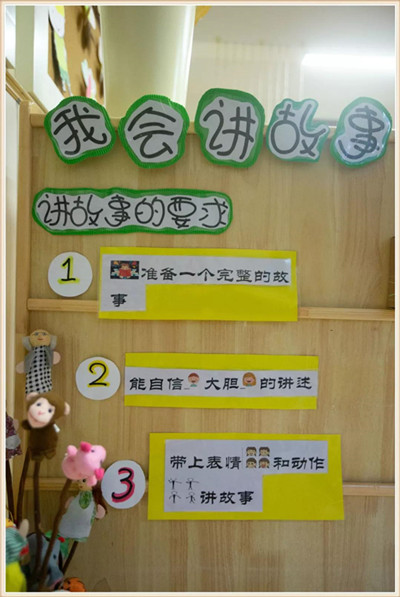 我会讲故事
讲故事的要求
1
准备一个完整的故
事
2
能自信 大胆 的讲述
3
带上表情 和动作
讲故事